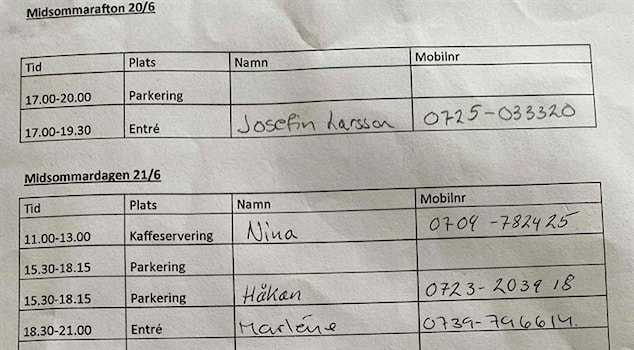 Midsommarafton 20/6
Tid Plats Namn Mobilnr
17.00-20.00 Parkering
17.00-19.30 Entré Josefin Larsson 0725-033320
Midsommardagen 21/6
Tid Plats Namn Mobilnr
11.00-13.00 Kaffeservering Nina 0709-782425
15.30-18.15 Parkering
15.30-18.15 Parkering Håkan 0723-2039 18
18.30-21.00 Entré Marléne 0739-796614.